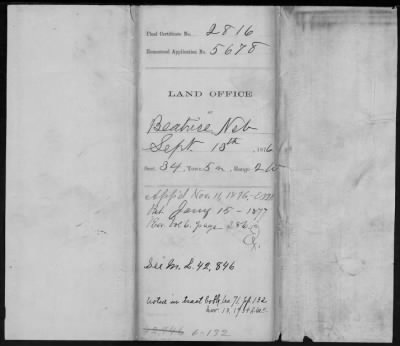 Final Certificate No. 2816
Homestead Application No. 5678
LAND OFFICE
at
Beatrice Neb
Sept. 15th, 1876
Sect. 34, Town. 5 n, Range 2 W
App'd Nov. 11, 1876,
Pat Jany 15 - 1877
Rec. Vol 6. page 286
See M. L. 42,846
Notice in Tract Book No 71 p 132
Nov. 13, 1934
6-132